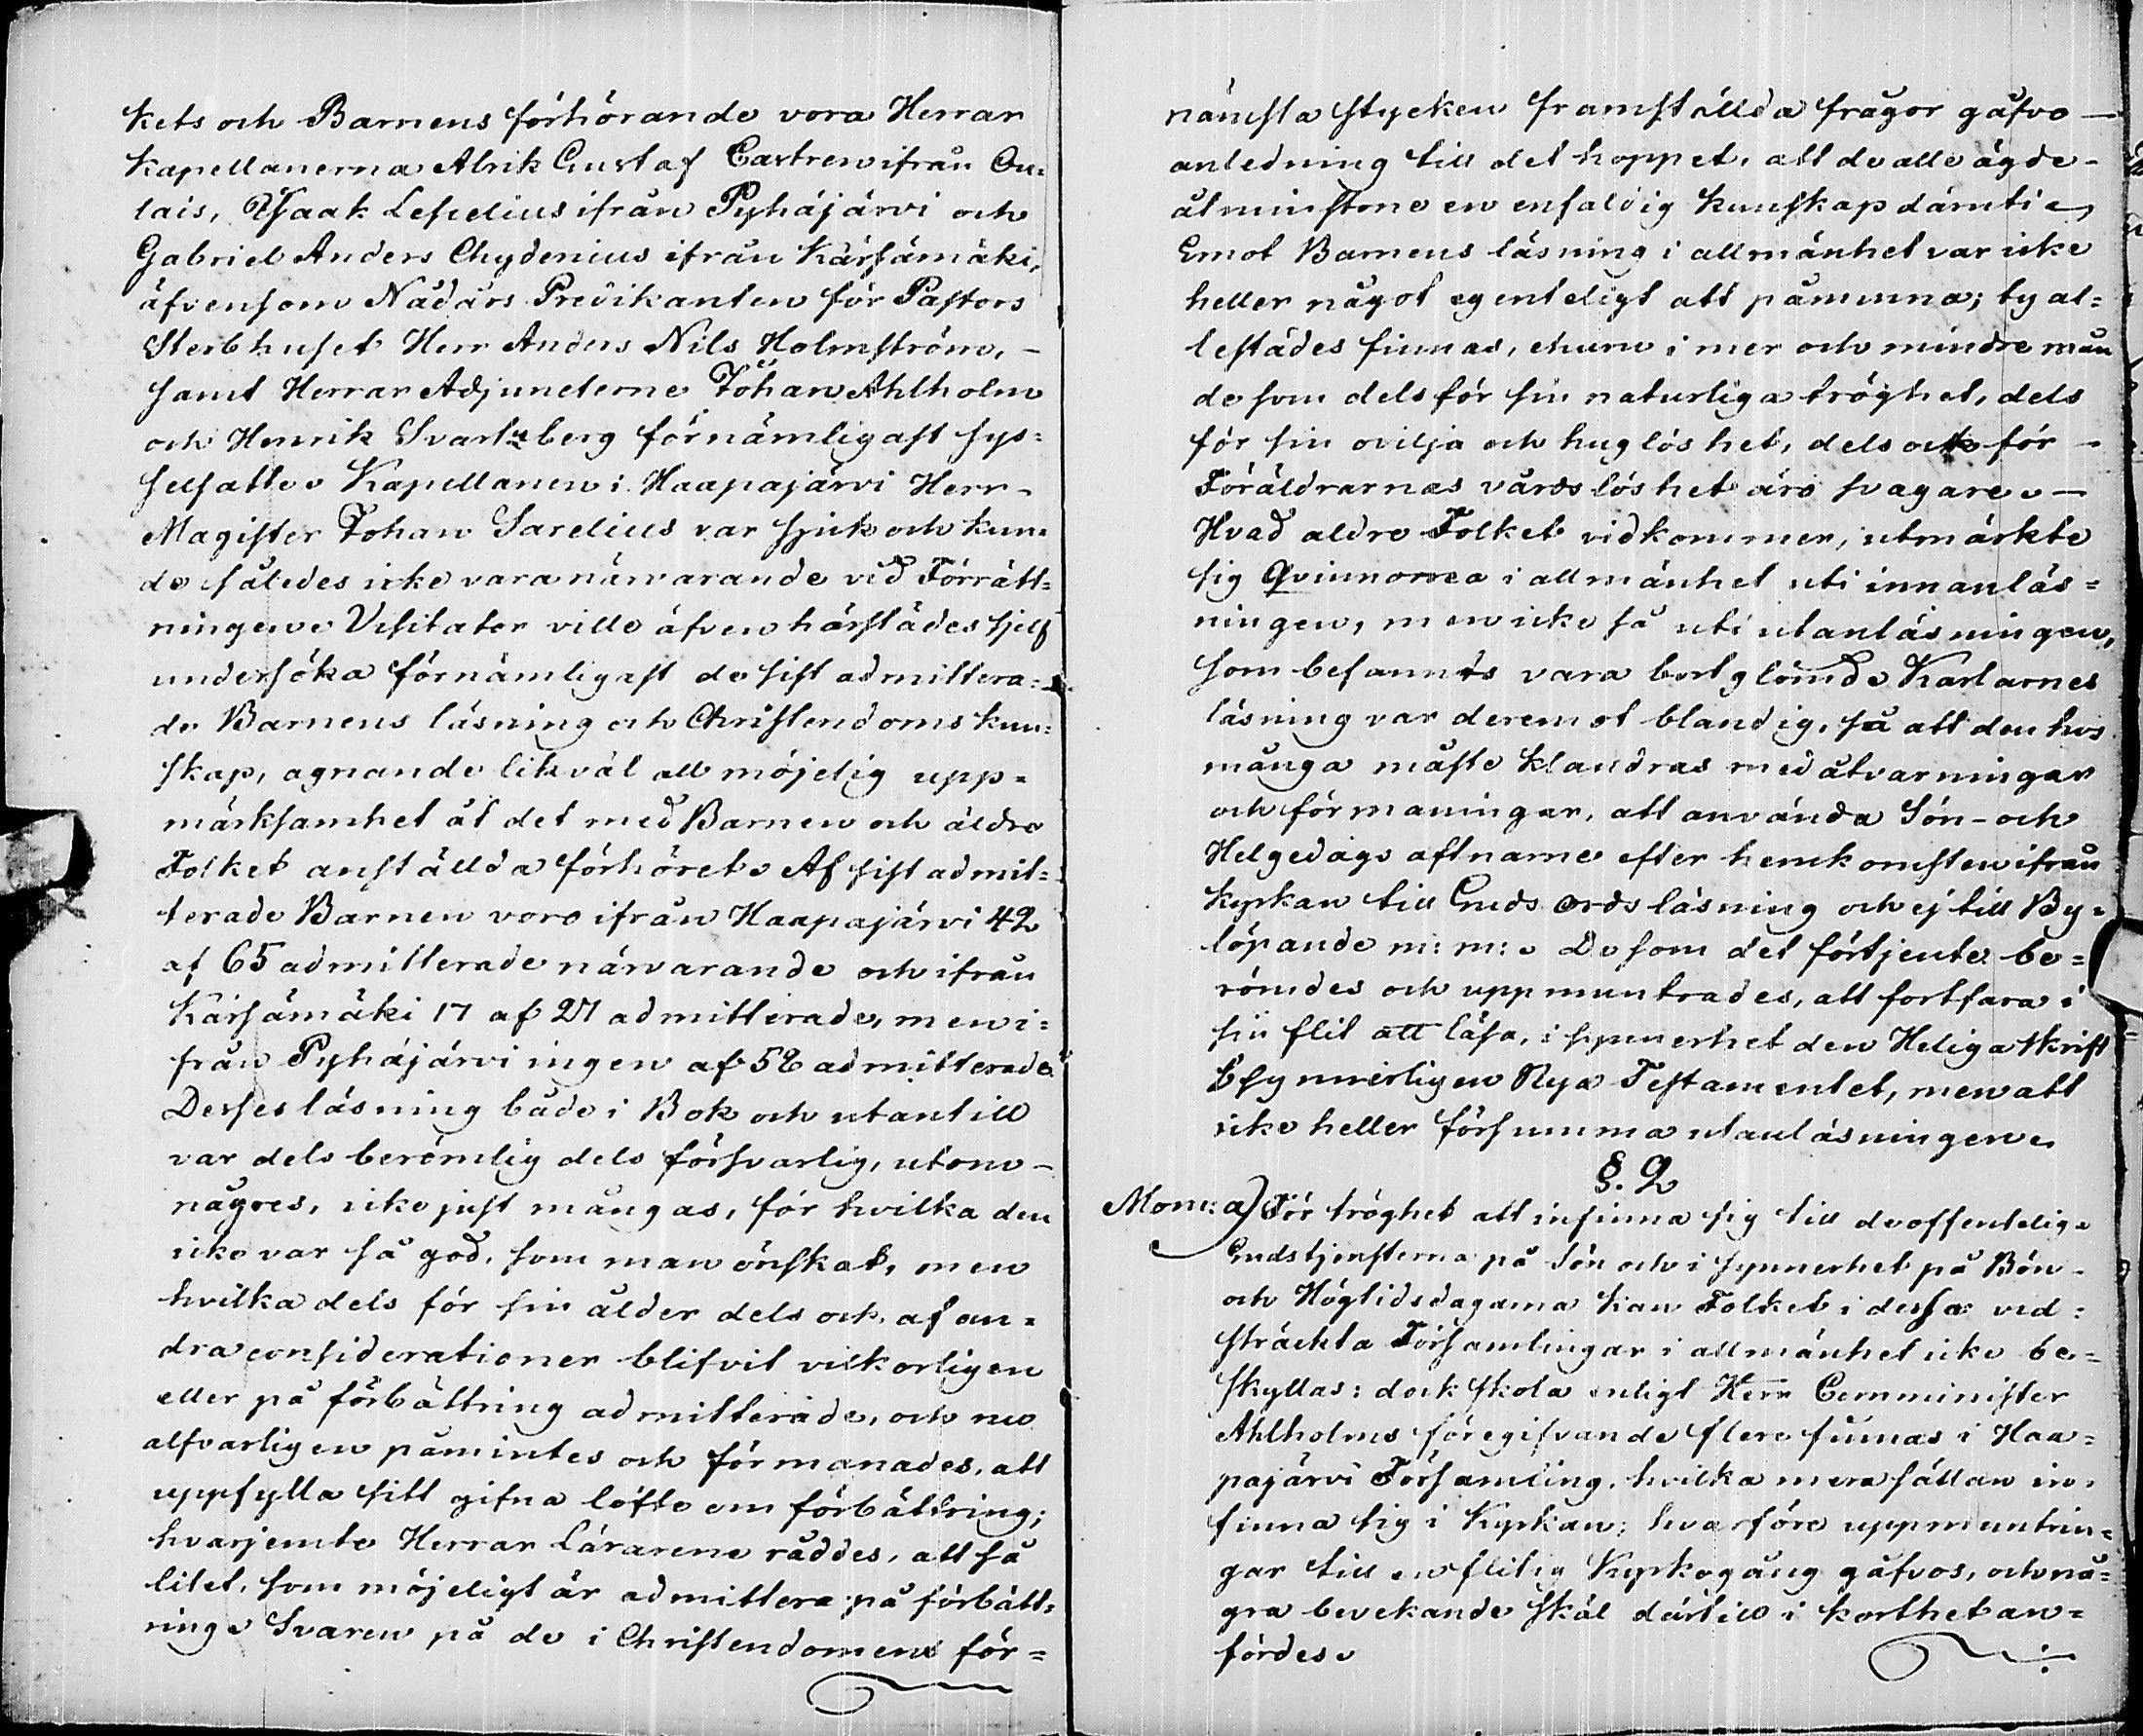 kets och Barnens förhörande vora Herrar
kapellanerna Alrik Gustaf Castren ifrån Ou-
lais, Isaak Lesselius ifrån Pyhäjärvi och
Gabriel Anders Chydenius ifrån Kärsämäki,
äfvensom Nådårs Predikanten för Pastors
Sterbhuset Herr Anders Nils Holmström, -
samt Herrar Adjuncterne Johan Ahlholm
och Henrik Svartzberg förnämligast sys=
selsatte. Kapellanen i Haapajärvi Herr -
Magister Johan Sarelius var sjuk och kun-
de således icke vara närvarande vid Förrätt=
ningen. Visitator ville äfven härstädes sjelf
undersöka förnämligast de sist admittera=
de Barnens läsning och Christendoms kun=
skap, agnande likväl all möjelig upp=
märksamhet åt det med Barnen och äldre
Folket anställda förhöret. Af sist admit=
terade Barnen voro ifrån Haapajärvi 42
af 65 admitterade närvarande och ifrån
Kärsämäki 17 af 27 admitterade, men i=
från Pyhäjärvi ingen af 52 admitterade.
Desses läsning både i Bok och utantill
var dels berömlig dels försvarlig, utom -
någres, icke just mångas, för hvilka den
icke var så god, som man önskat, men
hvilka dels för sin ålder dels och af an=
dra considerationer blifvit vilkorligen
eller på förbättring admitterade, och nu
alfvarligen påmintes och förmanades, att
uppfylla sitt gifna löfte om förbättring;
hvarjemte Herrar Lärarene råddes, att så
litet, som möjeligt är admittera på förbätt=
ring. Svaren på de i Christendomens för=
nämsta stycken framställda frågor gåfvo -
anledning till det hoppet, att de alle ägde -
åtminstone en enfaldig kunskap däruti.
Emot Barnens läsning i allmänhet var icke
heller något egenteligt att påminna; ty al=
lestädes finnas, ehuru i mer och mindre mån
de som dels för sin naturliga tröghet, dels
för sin ovilja och huglöshet, dels och för -
Föräldrarnas vårdslöshet äro svagare. -
Hvad äldre Folket vidkommer, utmärkte
sig Qvinnorna i allmänhet uti innanläs=
ningen, men icke så uti utanläsningen,
som befanns vara bortglömd. Karlarnes
läsning var deremot blandig, så att den hos
många måste klandras med åtvarningar
och förmaningar, att använda Sön- och
Helgedags aftnarne efter hemkomsten ifrån
kyrkan till Guds ords läsning och ej till By=
löpande m: m: . De som det förtjente be=
römdes och uppmuntrades, att fortfara i
sin flit att läsa, i synnerhet den Heliga skrift
Esynnerligen Nya Testamentet, men att
icke heller försumma utanläsningen.
§. 2
Mom: a) För tröghet att infinna sig till de offentelige
Gudstjensterna på Sön och i synnerhet på Bön -
och Högtidsdagarna kan Folket i dessa vid=
sträckta Församlingar i allmänhet icke be=
skyllas: dock skola enligt Herr Comminister
Ahlholms föregifvande flere finnas i Haa=
pajärvi Församling, hvilka mera sällan in-
finna sig i Kyrkan; hvarföre uppmuntrin=
gar till en flitig Kyrkogång gåfvos, och nå=
gra bevekande skäl därtill i korthet an=
fördes.